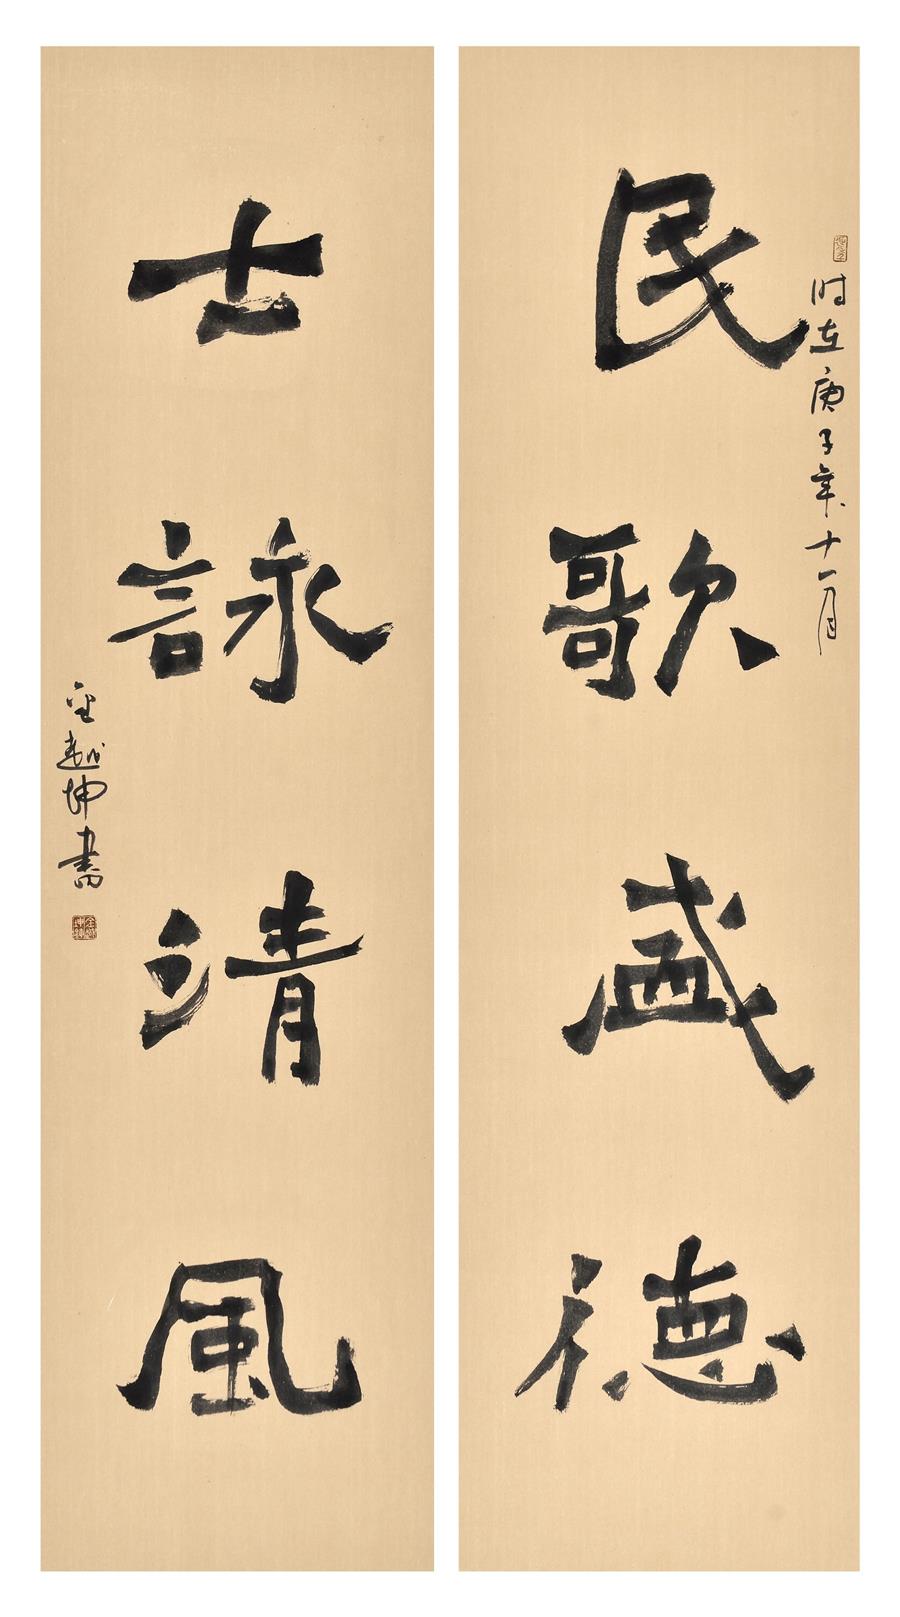 民歌盛德
时在庚子年十一月
士詠清風
金越坤書